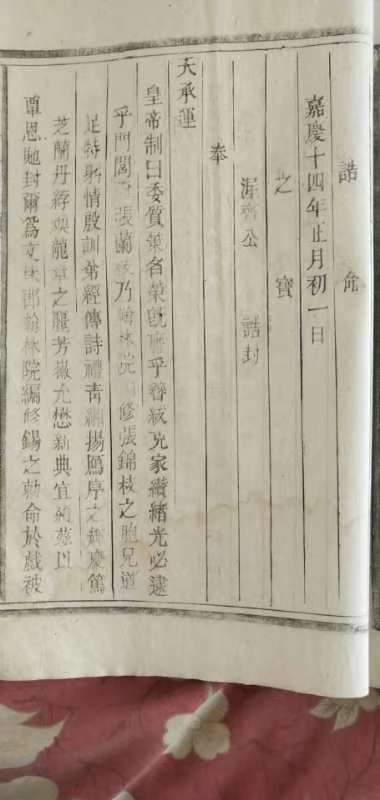 誥命
嘉慶十四年正月初一日
之寶
公誥封
奉
天承運
皇帝制曰委質策名榮既膺乎簪紱克家纘緒光必逮
乎門閭張蘭乃翰林院修張錦枝之胞兄道
足特躬情殷訓弟經傳詩禮青緗揚鴈序之慶篤
芝蘭丹綍煥龍章之麗芳徽允懋新典宜以
覃恩貤封爾為文林郎翰林院編修錫之勅命於戲被